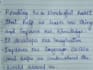 Reading is a wonderful habit
that help us learn new things
and improve our knowledge.
It develops our imagination
improves our language skills
and helps us understand the
world around us